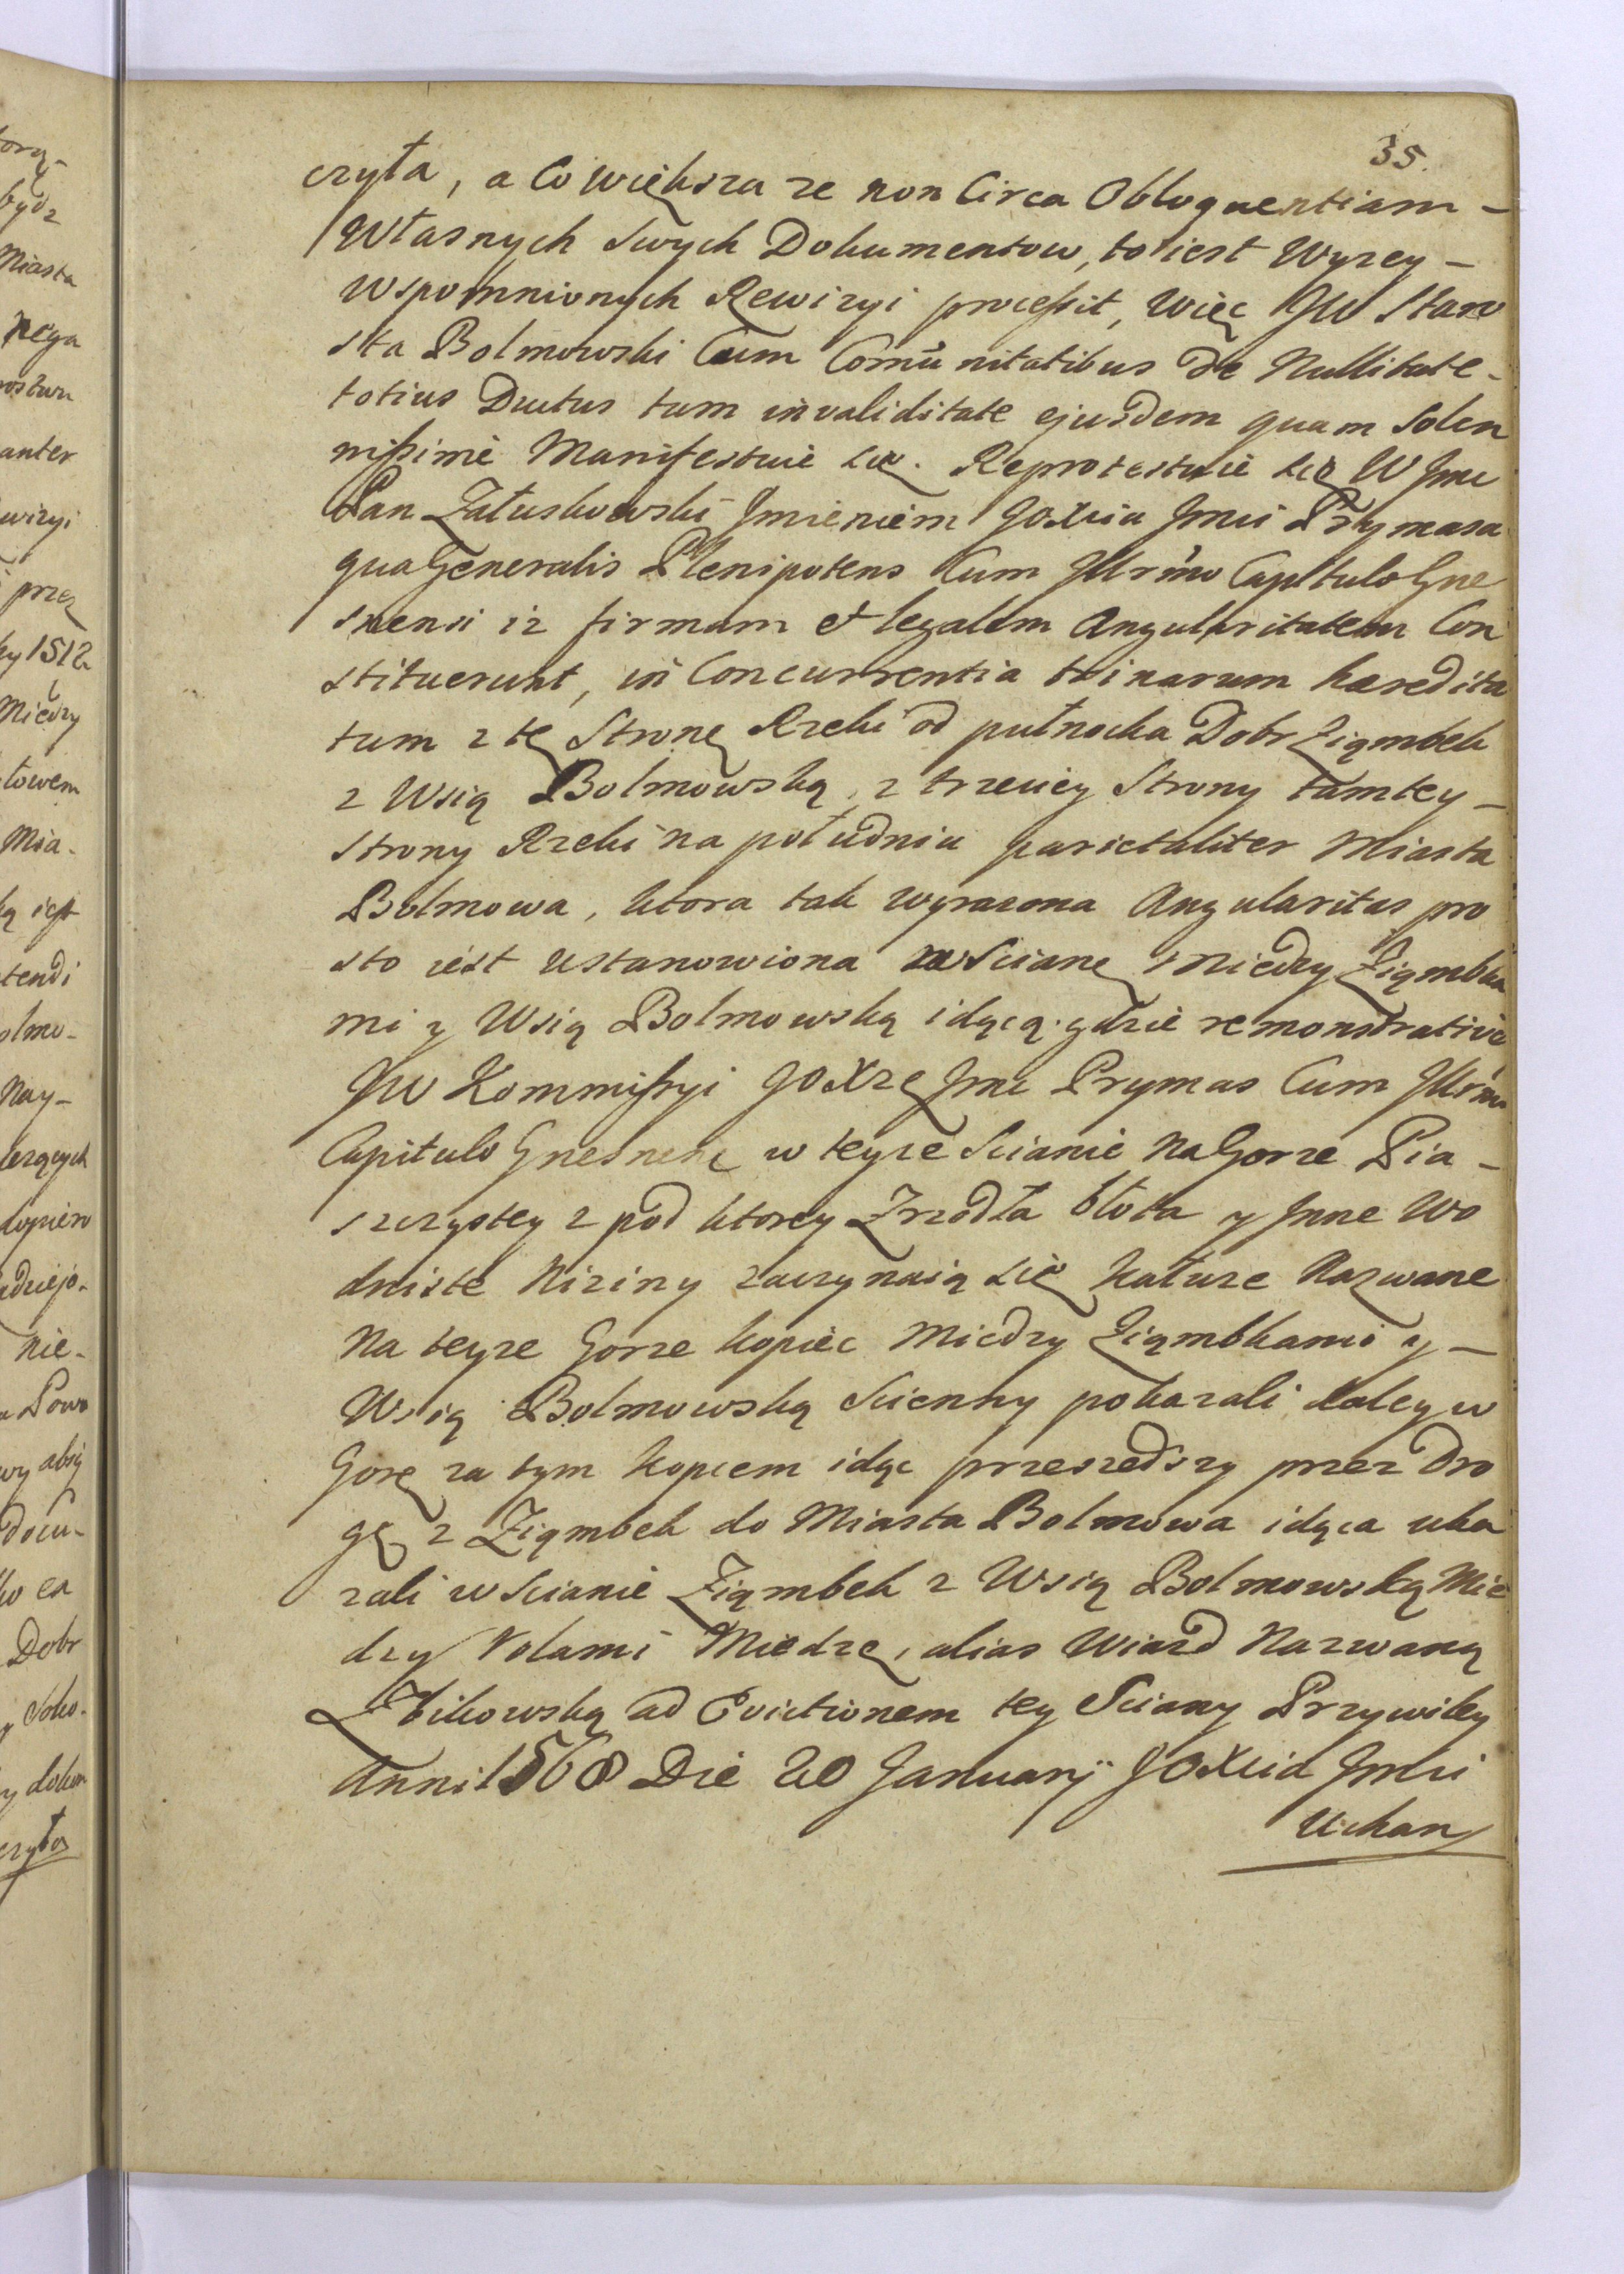 35.
czyła, a Co większa ze non Circa Obloquentiam –
Własnych Swych Dokumentow, to iest Wyzey –
wspomnionych Rewizyi processit, Więc JW Staro
sta Bolmowski Cum Comunitatibus De Nullitate –
totius Ductus tum invaliditate ejusdem quam Solen
nissime Manifestuie się. Reprotestuie się W Jmc
Pan Załuskowski Jmieniem JOXcia Jmci Prymasa
qua Generalis Plenipotens Cum Jllrmo Capitulo Gne
snensi iz firmam et legalem Angularitatem Con
stituerunt, in Concurrentia trinarum haeredita
tum z tę Stronę Rzeki od pułnocka Dobr Ziąmbek
z Wsią Bolmowską, z trzeciey Strony tamtey –
strony Rzeki na południu parietaliter Miasta
Bolmowa, ktora tak wyrazona Angularitas pro
sto iest ustanowiona w Scianę między Ziąmbka
mi y Wsią Bolmowską idącą. gdzie remonstrative
JW Kommissyi JOXże Jmc Prymas Cum Jllrmo
Capitulo Gnesnensi w teyze Scianie Na Gorze Pia –
szczystey z pod ktorey Zrzodła błota y Jnne Wo
dniste Niziny zaczynaią się kałuze Nazwane
Na teyze Gorze kopiec Miedzy Ziąmbkami y –
Wsią Bolmowską Scienny pokazali daley w
Gorę za tym kopcem idąc przeszedszy przez Dro
gę z Ziąmbek do Miasta Bolmowa idąca uka
zali w Scianie Ziąmbek z Wsią Bolmowską Mie
dzy Rolami Miedzę, alias Wiazd Nazwaną
Zbikowską ad Evictionem tey Sciany Przywiley
Anni 1568 Die 20 Januarij JOXcia Jmci
Uchan